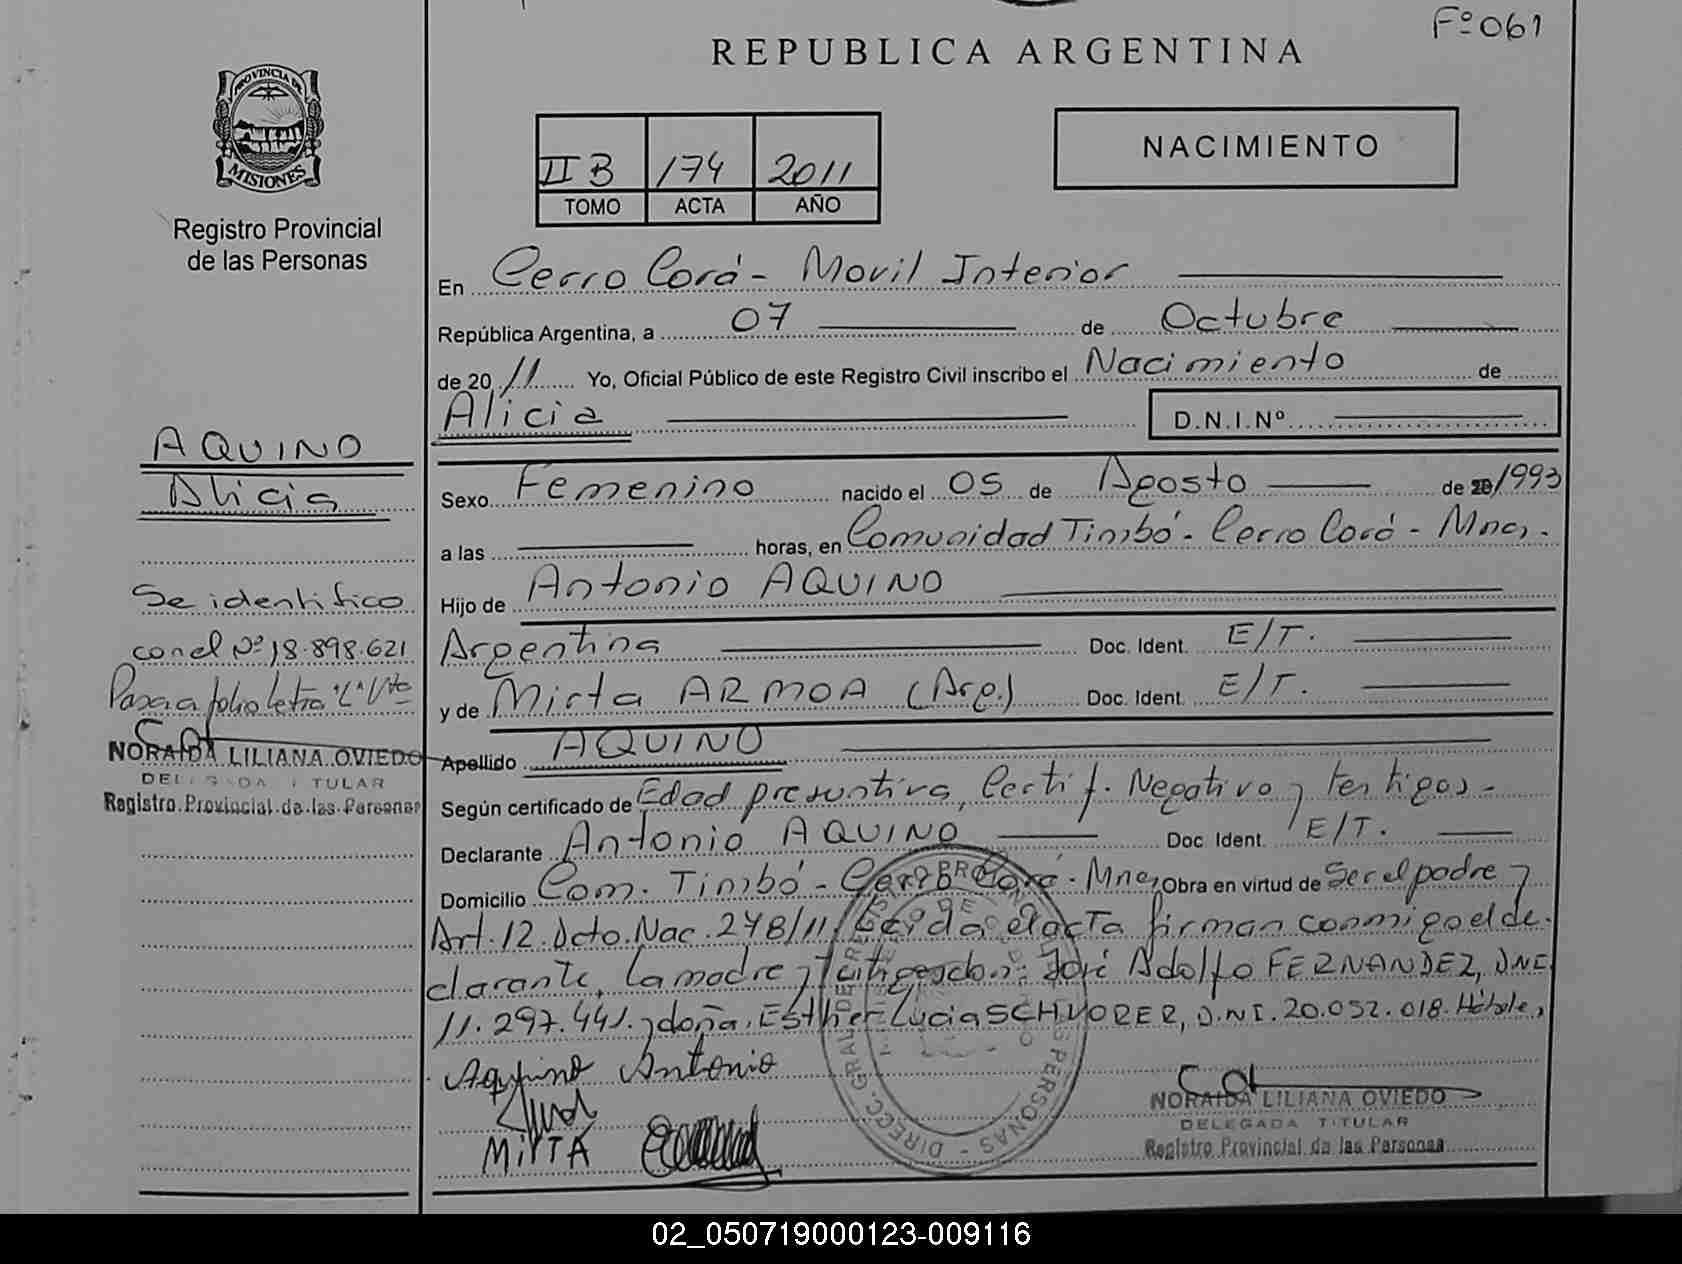 Fº 061
REPUBLICA ARGENTINA
PROVINCIA DE
MISIONES
Registro Provincial
de las Personas
II B 174 2011
TOMO ACTA AÑO
NACIMIENTO
En Cerro Corá - Movil Interior
República Argentina, a 07 de Octubre
de 20 11 Yo, Oficial Público de este Registro Civil inscribo el Nacimiento de
Alicia D.N.I.Nº
AQUINO
Alicia
Se identifico
con el Nº 18.898.621
Pasa a folio letra "L" Vto
NORAIDA LILIANA OVIEDO
DELEGADA TITULAR
Registro Provincial de las Personas
Sexo Femenino nacido el 05 de Agosto de 20 1993
a las horas, en Comunidad Timbó - Cerro Corá - Mnes.
Hijo de Antonio AQUINO
Argentina Doc. Ident. E/T.
y de Mirta ARMOA (Arg.) Doc. Ident. E/T.
Apellido AQUINO
Según certificado de Edad presuntiva, Certif. Negativo y testigos -
Declarante Antonio AQUINO Doc. Ident. E/T.
Domicilio Com. Timbó - Cerro Corá - Mnes, Obra en virtud de Ser el padre y
Art. 12. Dcto. Nac. 278/11. Leída el acta firman conmigo el de-
clarante, la madre y testigos don: José Adolfo FERNANDEZ, DNI
11.297.441. y doña, Esther Lucia SCHVORER, D.NI. 20.052.018. Hábiles,
Aquino Antonio
MirTA
NORAIDA LILIANA OVIEDO
DELEGADA TITULAR
Registro Provincial de las Personas
02_050719000123-009116